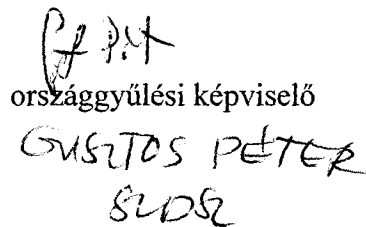 országgyűlési képviselő
GUSZTOS PÉTER
SZDSZ